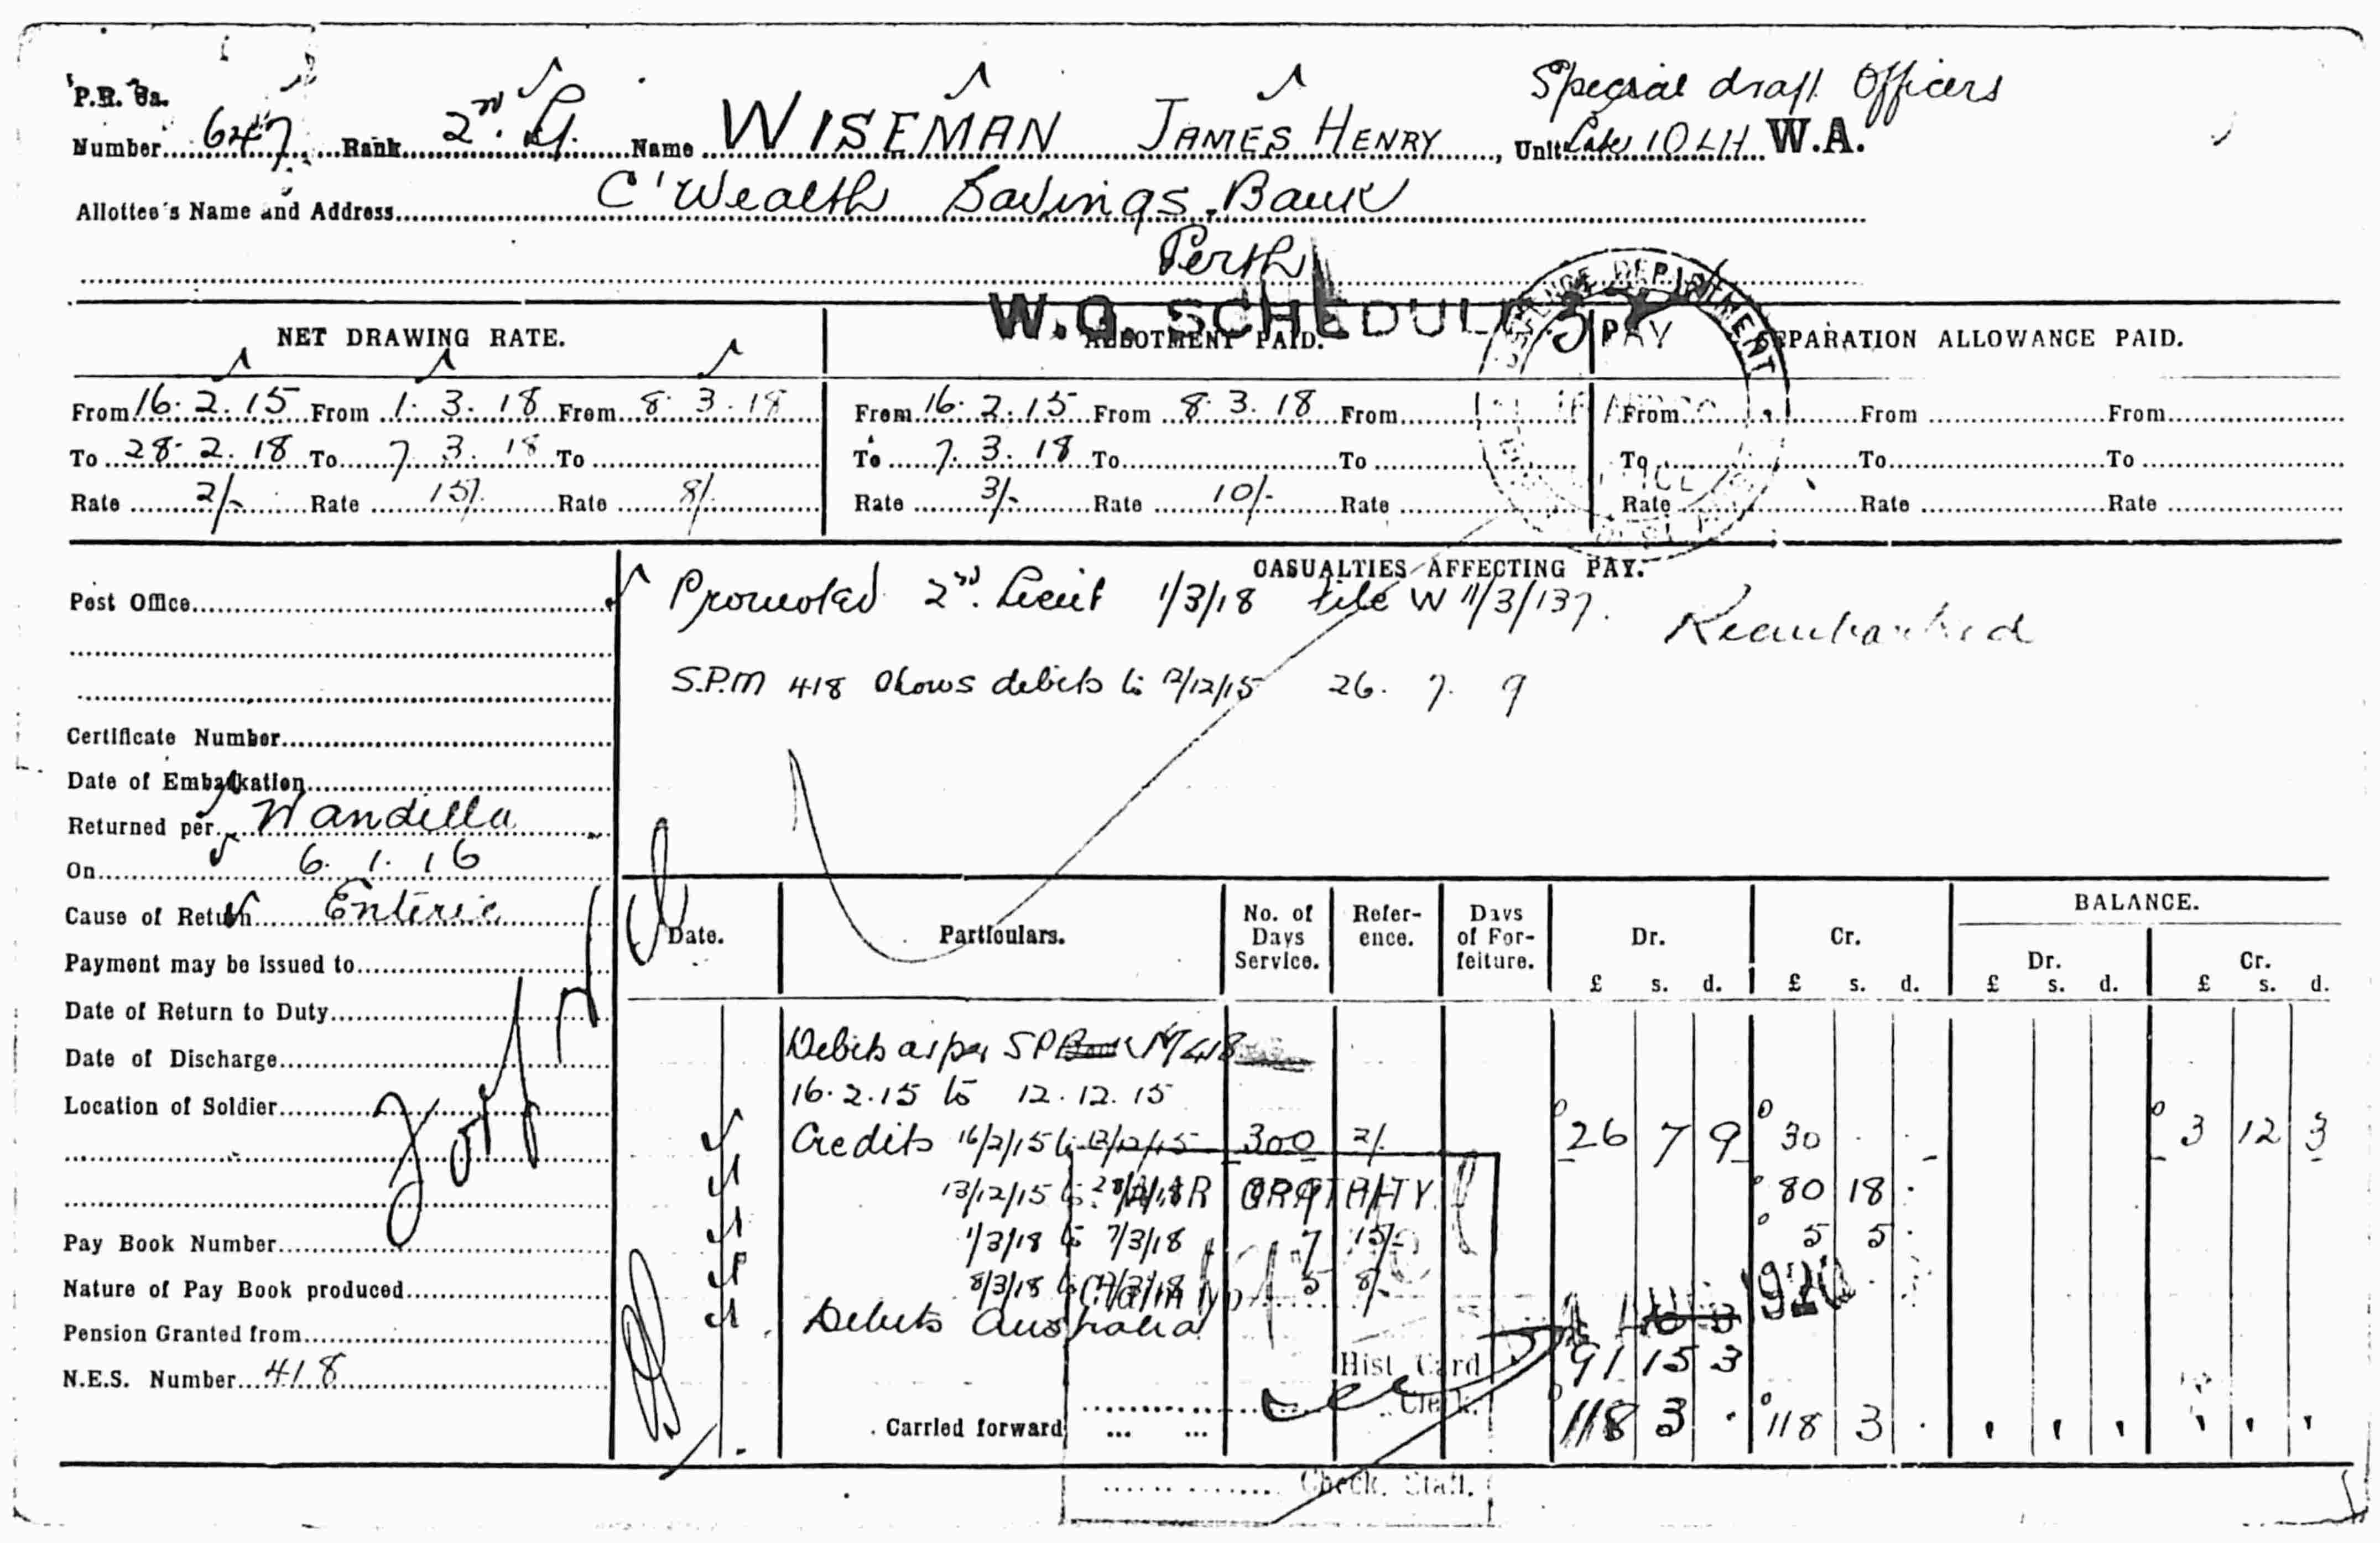 P.R. 3a.
Special draft Officers
Number 647 Rank 2nd Lt. Name WISEMAN JAMES HENRY, Unit Late 10 LH W.A.
Allottee's Name and Address C'Wealth Savings Bank
Perth
W.G. SCHEDULE
DEFENCE DEPARTMENT
PAY
NET DRAWING RATE. ALLOTMENT PAID. SEPARATION ALLOWANCE PAID.
From 16.2.15 From 1.3.18 From 8.3.18 From 16.2.15 From 8.3.18 From From From From
To 28.2.18 To 7.3.18 To To 7.3.18 To To To To To
Rate 2/- Rate 15/. Rate 8/. Rate 3/- Rate 10/- Rate Rate Rate Rate
CASUALTIES AFFECTING PAY.
Promoted 2nd Lieut 1/3/18 file W 11/3/137. Reembarked
S.P.M 418 shows debits to 12/12/15 26. 7. 9
Post Office
Certificate Number
Date of Embarkation
Returned per Wandilla
On 6.1.16
Cause of Return Enteric
Payment may be issued to
Date of Return to Duty
Date of Discharge
Location of Soldier
Pay Book Number
Nature of Pay Book produced
Pension Granted from
N.E.S. Number 418
Date. Particulars. No. of Days Service. Reference. Days of Forfeiture. Dr. Cr. BALANCE.
Dr. Cr.
£ s. d. £ s. d. £ s. d. £ s. d.
Debits as per SP Book M 418
16.2.15 to 12.12.15
Credits 16/2/15 to 12/12/15 300 2/. 26 7 9 30 . . 3 12 3
13/12/15 to 28/2/18 80 18 .
WAR GRATUITY
1/3/18 to 7/3/18 7 15/- 5 5 .
8/3/18 to 12/3/18 5 8/-
Claim No
1920
Debits Australia
91 15 3
Hist. Card
Clerk.
Carried forward ... ... 118 3 . 118 3 .
Check. Staff.